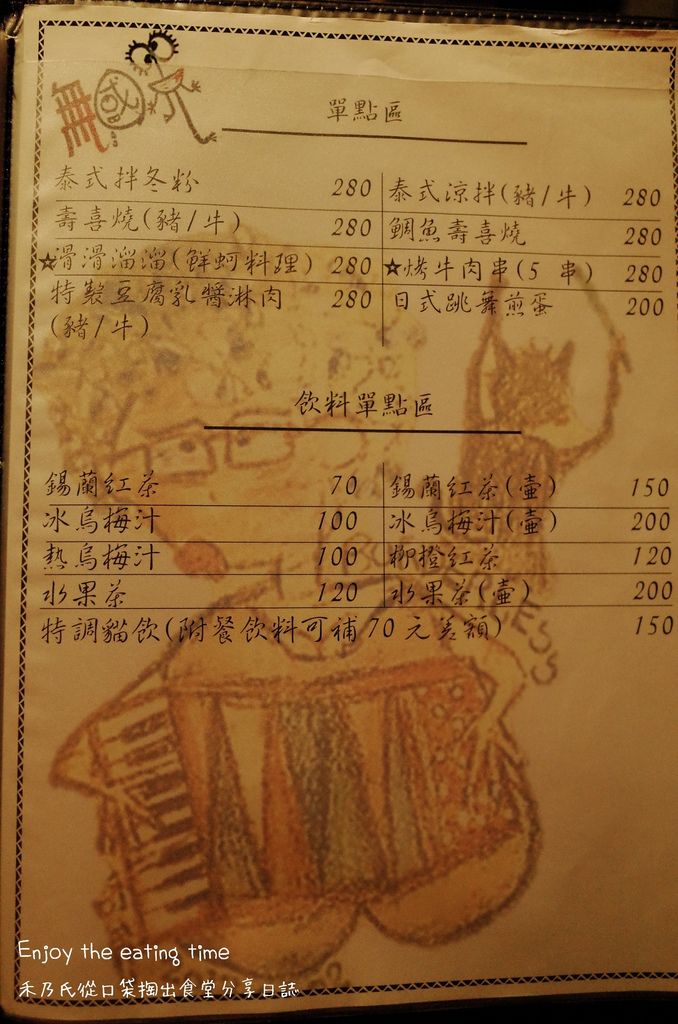 單點區
泰式拌冬粉 280
泰式涼拌(豬/牛) 280
壽喜燒(豬/牛) 280
鯛魚壽喜燒 280
★滑滑溜溜(鮮蚵料理) 280
★烤牛肉串(5 串) 280
特製豆腐乳醬淋肉 280
(豬/牛)
日式跳舞煎蛋 200
飲料單點區
錫蘭紅茶 70
錫蘭紅茶(壺) 150
冰烏梅汁 100
冰烏梅汁(壺) 200
熱烏梅汁 100
柳橙紅茶 120
水果茶 120
水果茶(壺) 200
特調貓飲(附餐飲料可補70元差額) 150
Enjoy the eating time
禾乃氏從口袋掏出食堂分享日誌